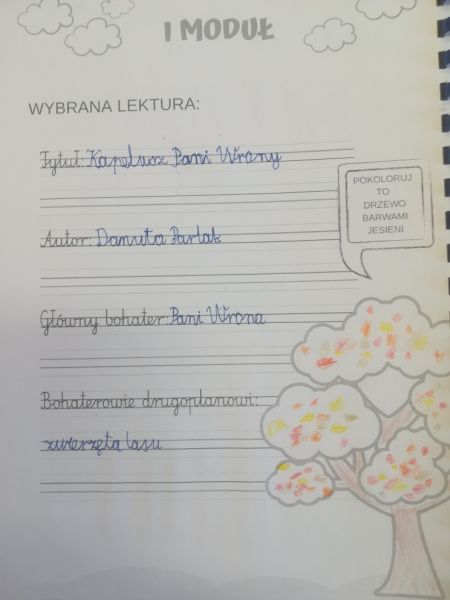 I MODUŁ
WYBRANA LEKTURA:
Tytuł: Kapelusz Pani Wrony
POKOLORUJ
TO
DRZEWO
BARWAMI
JESIENI
Autor: Danuta Parlak
Główny bohater: Pani Wrona
Bohaterowie drugoplanowi:
zwierzęta lasu